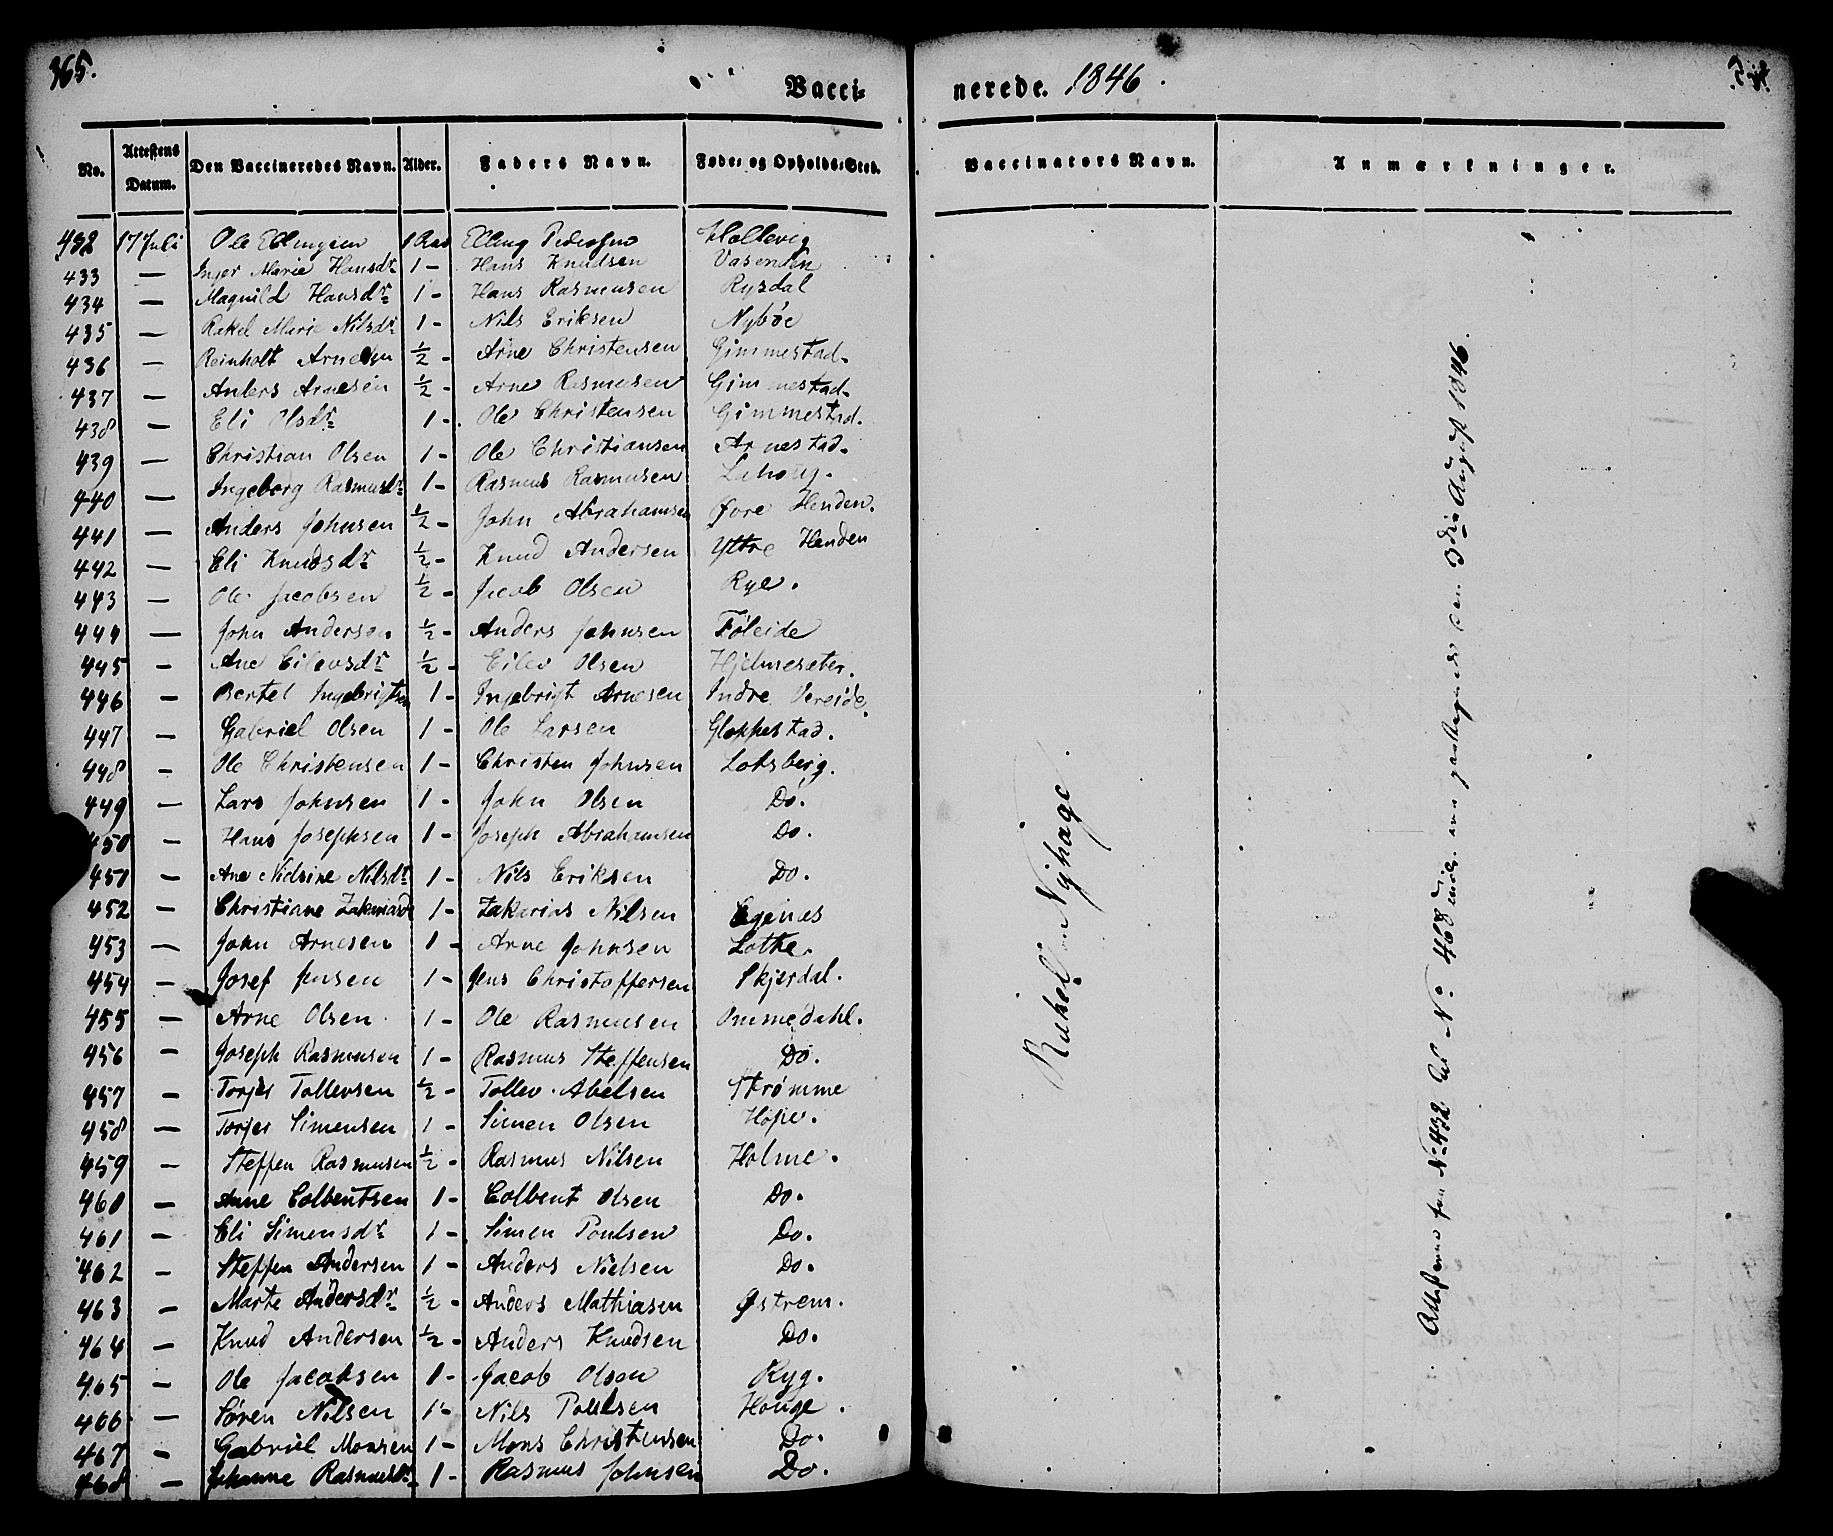 365.
Vaccinerede. 1846.
No. Attestens Datum. Den Vaccineredes Navn. Alder. Faders Navn. Føde- og Opholds-Sted. Vaccinators Navn. Anmærkninger.
432 17 Juli Ole Ellingsen 1 Aar Elling Pedersen Hollevig
433 — Inger Marie Hansdr 1 - Hans Knudsen Vasenden
434 — Magnild Hansdr 1 - Hans Rasmusen Rysdal
435 — Rakel Marie Nilsdr 1 - Nils Eriksen Nybøe
436 — Reinholt Arnesen ½ - Arne Christensen Gimmestad
437 — Anders Arnesen ½ - Arne Rasmusen Gimmestad
438 — Eli Olsdr 1 - Ole Christensen Gimmestad.
439 — Christian Olsen 1 - Ole Christiansen Arnestad.
440 — Ingeborg Rasmusdr 1 - Rasmus Rasmusen
441 — Anders Johnsen ½ - John Abrahamsen Øvre Henden.
442 — Eli Knudsdr ½ - Knud Andersen Yttre Henden
443 — Ole Jacobsen ½ - Jacob Olsen Rye.
444 — John Anderson ½ - Anders Johnsen Føleide
445 — Ane Eilevsdr ½ - Eilev Olsen Hjelmeseter.
446 — Bertel Ingebrigtsen 1 - Ingebrigt Arnesen Indre Vereide.
447 — Gabriel Olsen 1 - Ole Larsen Gloppestad.
448 — Ole Christensen 1 - Christen Johnsen Lotsberg.
449 — Lars Johnsen 1 - John Olsen Do.
450 — Hans Josephsen 1 - Joseph Abrahamsen Do.
451 — Ane Nielsine Nilsdr 1 - Nils Eriksen Do.
452 — Christiane Zakariasd 1 - Zakarias Nilsen Egenes
453 — John Arnesen 1 - Arne Johnsen Lothe.
454 — Josef Jensen 1 - Jens Christoffersen Skjerdal.
455 — Arne Olsen 1 - Ole Rasmusen Ommedahl.
456 — Joseph Rasmusen 1 - Rasmus Steffensen Do.
457 — Torjer Tollevsen ½ - Tollev Abelsen Strømme
458 — Torjer Simensen 1 - Simen Olsen Hope.
459 — Steffen Rasmusen ½ - Rasmus Nilsen Holme.
460 — Anne Colbentsen 1 - Colbent Olsen Do.
461 — Eli Simensdr 1 - Simen Poulsen Do.
462 — Steffen Andersen 1 - Anders Nielsen Do.
463 — Marte Andersdr ½ - Anders Mathiasen Østrem.
464 — Knud Andersen ½ - Anders Knudsen Do.
465 — Ole Jacobsen 1 - Jacob Olsen Ryg.
466 — Søren Nilsen 1 - Nils Poulsen Houge.
467 — Gabriel Monsen 1 - Mons Christensen Do.
468 — Johanne Rasmusdr 1 - Rasmus Johnsen Do.
Nyhage
Attesterne fra No 432 til No 468 den 3die August 1846.